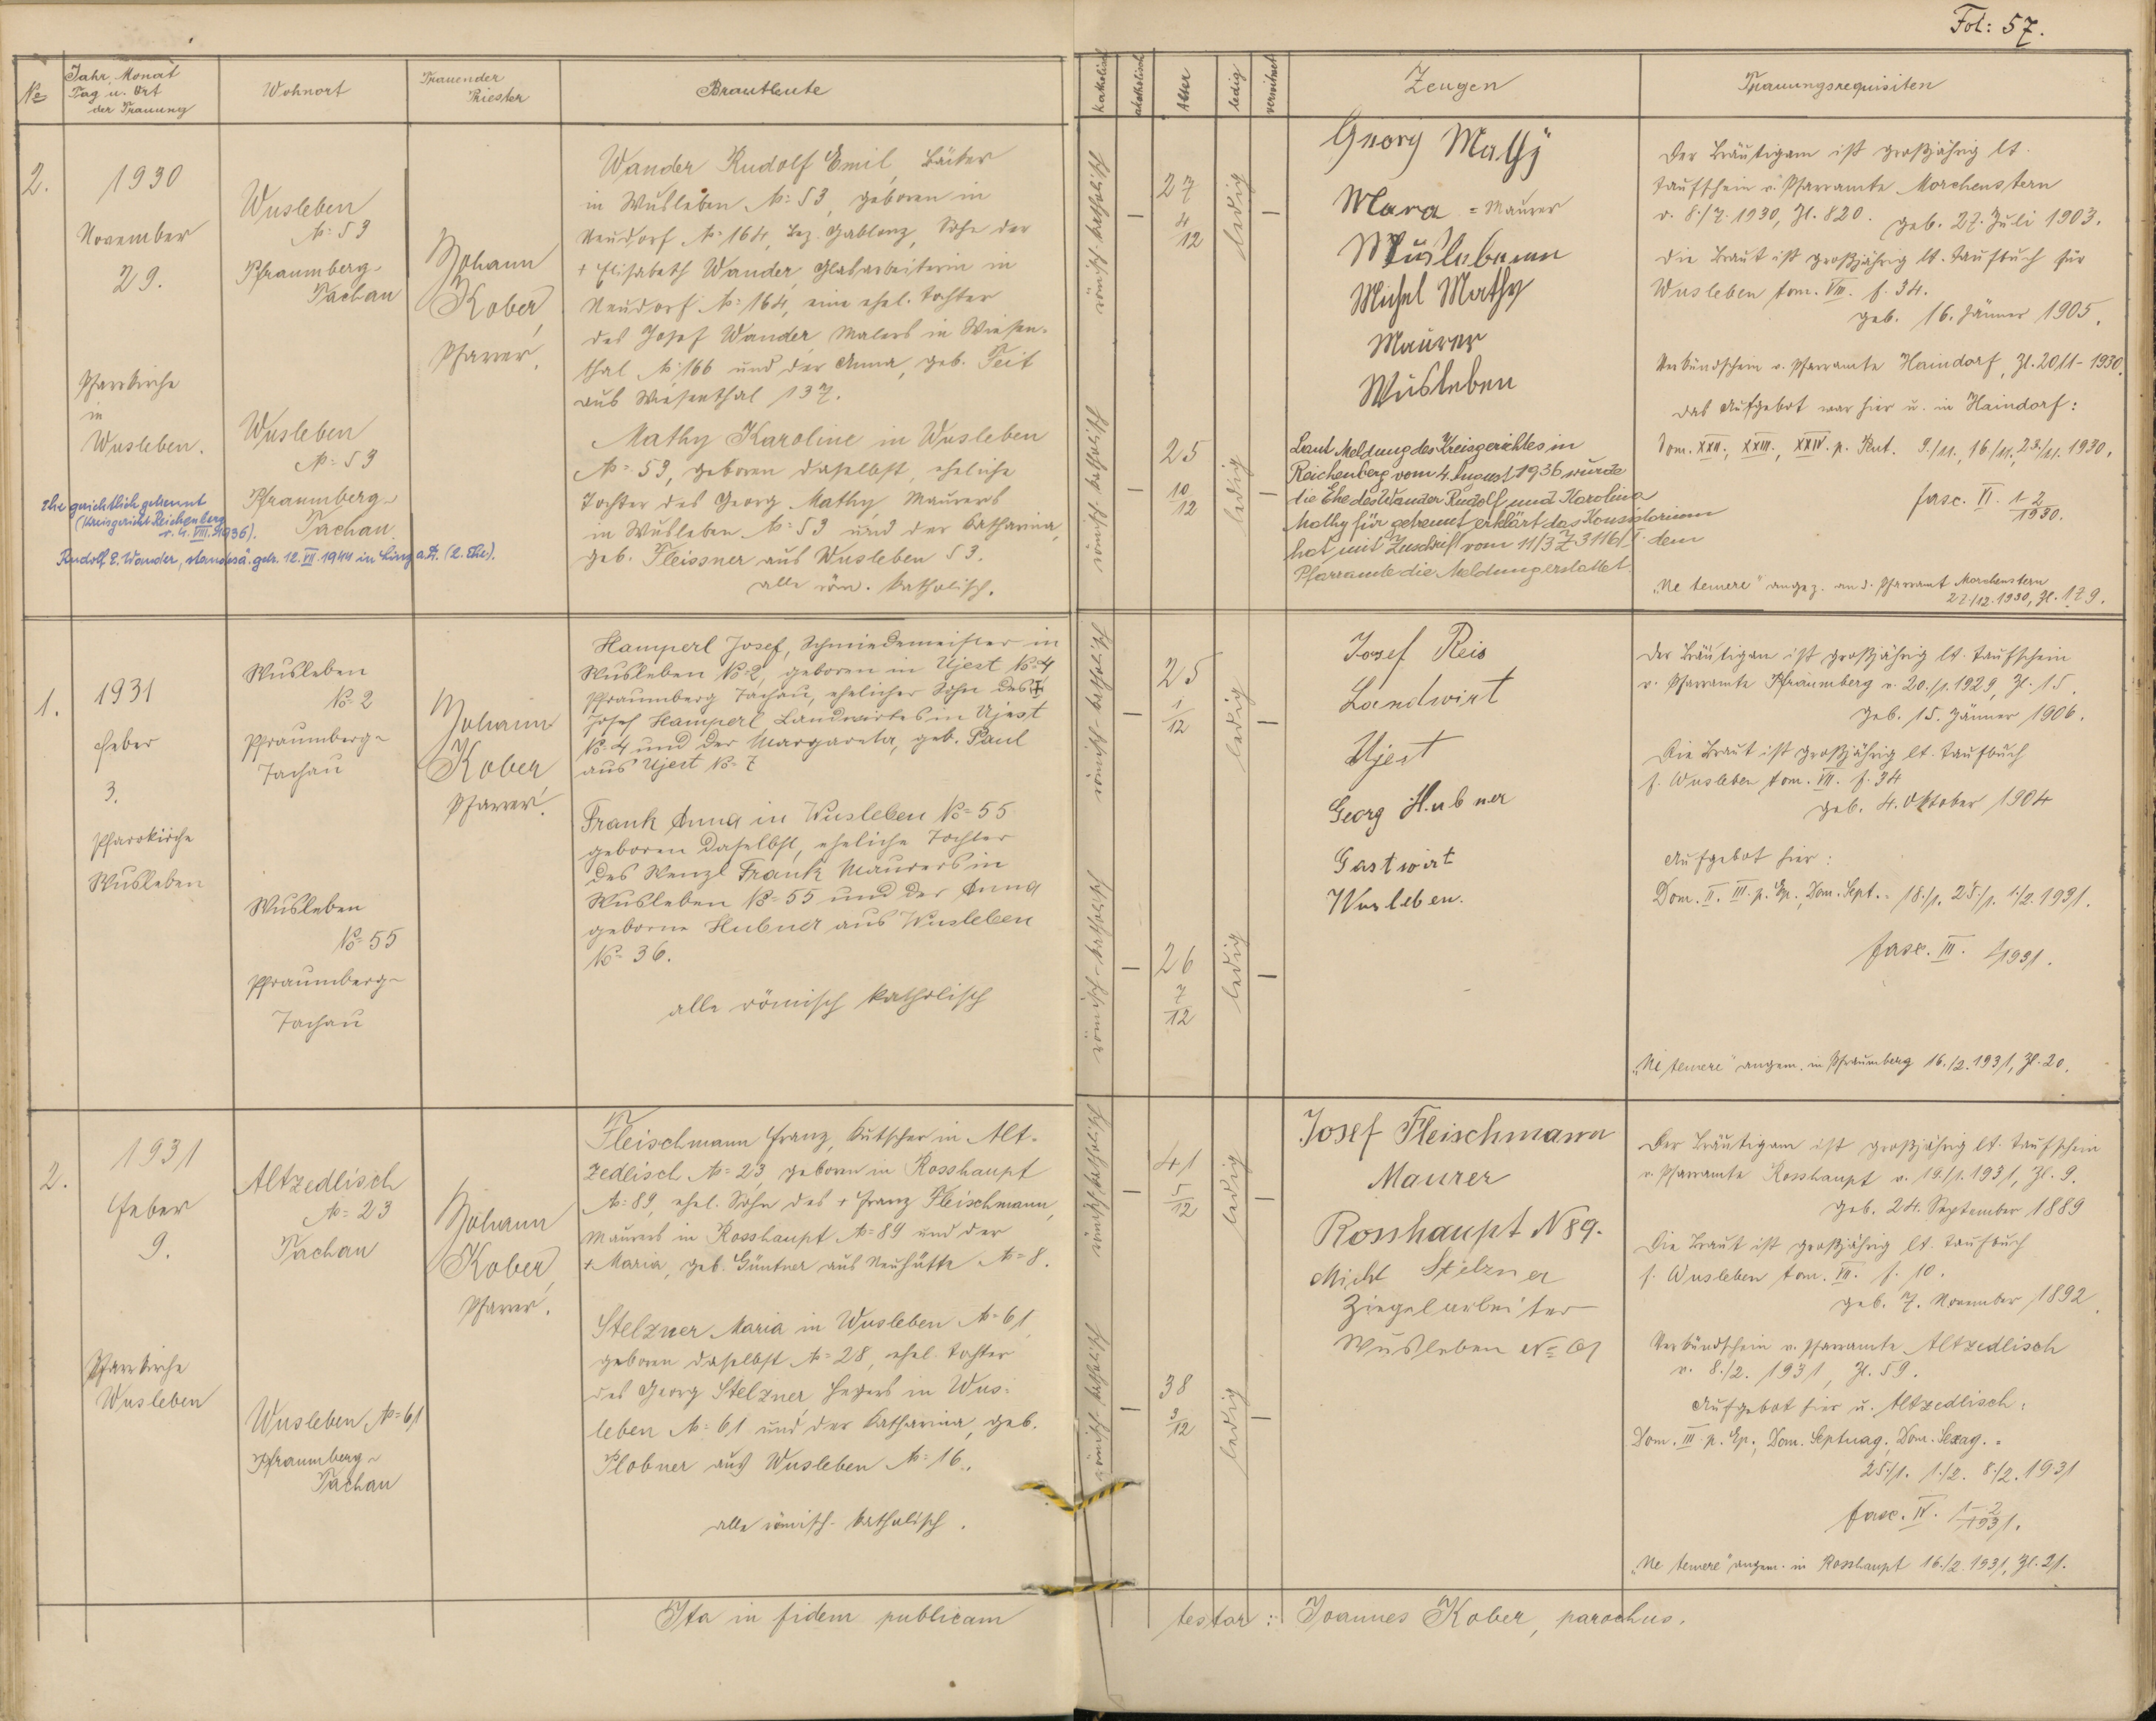 Fol: 57.
No
Jahr Monat
Tag u. Ort
der Trauung
Wohnort
Trauender
Priester
Brautleute
Katholisch
akatholisch
Alter
ledig
verwitwet
Zeugen
Trauungsrequisiten
2.
1930
November
29.
Pfarrkirche
in
Wusleben.
Wusleben
No= 53
Pfraumberg-
Tachau
Wusleben
No= 53
Pfraumberg-
Tachau.
Ehe gerichtlich getrennt
(Kreisgericht Reichenberg
v. 4. VIII. 1936).
Rudolf E. Wander, standesä. getr. 12. VII. 1944 in Linz a. D. (2. Ehe).
Johann
Kober,
Pfarrer.
Wander Rudolf Emil, Bäcker
in Wusleben No= 53, geboren in
Neudorf No= 164, Bez. Gablonz, Sohn der
+ Elisabeth Wander, Glasarbeiterin in
Neudorf No= 164, eine ehel. Tochter
des Josef Wander, Malers in Wiesen-
thal No 166 und der Anna, geb. Peit
aus Wiesenthal 137.
Mathy Karoline in Wusleben
No= 53, geboren daselbst, eheliche
Tochter des Georg Mathy, Maurers
in Wusleben No= 53 und der Katharina,
geb. Fleissner aus Wusleben 53.
alle röm. katholisch.
römisch katholisch
römisch katholisch
27
4
12
25
10
12
ledig
ledig
Georg Mathy
Mara = Maurer
Wusleben
Michel Mathy
Maurer
Wusleben
Laut Meldung des Kreisgerichtes in
Reichenberg vom 4. August 1936 wurde
die Ehe des Wander Rudolf und Karolina
Mathy für getrennt erklärt das Konsistorium
hat mit Zuschrift vom 11/3 Z 3116/I. dem
Pfarramte die Meldung erstattet.
Der Bräutigam ist großjährig lt.
Taufschein v. Pfarramte Morchenstern
v. 8./7. 1930, Zl. 820. geb. 27. Juli 1903.
Die Braut ist großjährig lt. Taufbuch für
Wusleben tom. VII. f. 34.
geb. 16. Jänner 1905.
Verkündschein v. Pfarramte Haindorf, Zl. 2011-1930.
Das Aufgebot war hier u. in Haindorf:
Dom. XXII., XXIII., XXIV. p. Pent. 9./11., 16./11., 23./11. 1930.
fasc. II. 1-2
1930.
"Ne temere" angez. an d. Pfarramt Morchenstern
27./12. 1930, Zl. 179.
1.
1931
Feber
3.
Pfarrkirche
Wusleben
Wusleben
No= 2
Pfraumberg-
Tachau
Wusleben
No= 55
Pfraumberg-
Tachau
Johann
Kober
Pfarrer.
Hamperl Josef, Schmiedemeister in
Wusleben No= 2, geboren in Ujest No= 4
Pfraumberg Tachau, ehelicher Sohn des +
Josef Hamperl Landwirtes in Ujest
No= 4 und der Margareta, geb. Paul
aus Ujest No= 7
Frank Anna in Wusleben No= 55
geboren daselbst, eheliche Tochter
des Wenzl Frank Maurers in
Wusleben No= 55 und der Anna
geborne Hubner aus Wusleben
No= 36.
alle römisch katholisch
römisch-katholisch
römisch-katholisch
25
1
12
26
7
12
ledig
ledig
Josef Reis
Landwirt
Ujest
Georg Hubner
Gastwirt
Wusleben.
Der Bräutigam ist großjährig lt. Taufschein
v. Pfarramte Pfraumberg v. 20./1. 1929, Zl. 15.
geb. 15. Jänner 1906.
Die Braut ist großjährig lt. Taufbuch
f. Wusleben tom. VII. f. 34
geb. 4. Oktober 1904
Aufgebot hier:
Dom. II. III. p. Ep., Dom. Sept. = 18./1. 25./1. 1./2. 1931.
fasc. III. 1/1931.
"Ne temere" angem. in Pfraumberg 16./2. 1931, Zl. 20.
2.
1931
Feber
9.
Pfarrkirche
Wusleben
Altzedlisch
No= 23
Tachau
Wusleben No= 61
Pfraumberg-
Tachau
Johann
Kober,
Pfarrer.
Fleischmann Franz, Kutscher in Alt-
zedlisch No= 23, geboren in Rosshaupt
No= 89, ehel. Sohn des + Franz Fleischmann,
Maurers in Rosshaupt No= 89 und der
+ Maria, geb. Güntner aus Neuhütte No= 8.
Stelzner Maria in Wusleben No= 61,
geboren daselbst No= 28, ehel. Tochter
des Georg Stelzner, Hegers in Wus-
leben No= 61 und der Katharina, geb.
Plobner aus Wusleben No= 16.
alle römisch-katholisch.
römisch katholisch
römisch-katholisch
41
5
12
38
3
12
ledig
ledig
Josef Fleischmann
Maurer
Rosshaupt N 89.
Michl Stelzner
Ziegelarbeiter
Wusleben No= 61
Der Bräutigam ist großjährig lt. Taufschein
v. Pfarramte Rosshaupt v. 19./1. 1931, Zl. 9.
geb. 24. September 1889
Die Braut ist großjährig lt. Taufbuch
f. Wusleben tom. VII. f. 10.
geb. 7. November 1892.
Verkündschein v. Pfarramte Altzedlisch
v. 8./2. 1931, Zl. 59.
Aufgebot hier u. Altzedlisch:
Dom. III p. Ep., Dom. Septuag., Dom. Sexag. =
25./1. 1./2. 8./2. 1931
fasc. IV. 1-2
1931.
"Ne temere" angem. in Rosshaupt 16./2. 1931, Zl. 21.
Ita in fidem publicam testor: Joannes Kober, parochus.